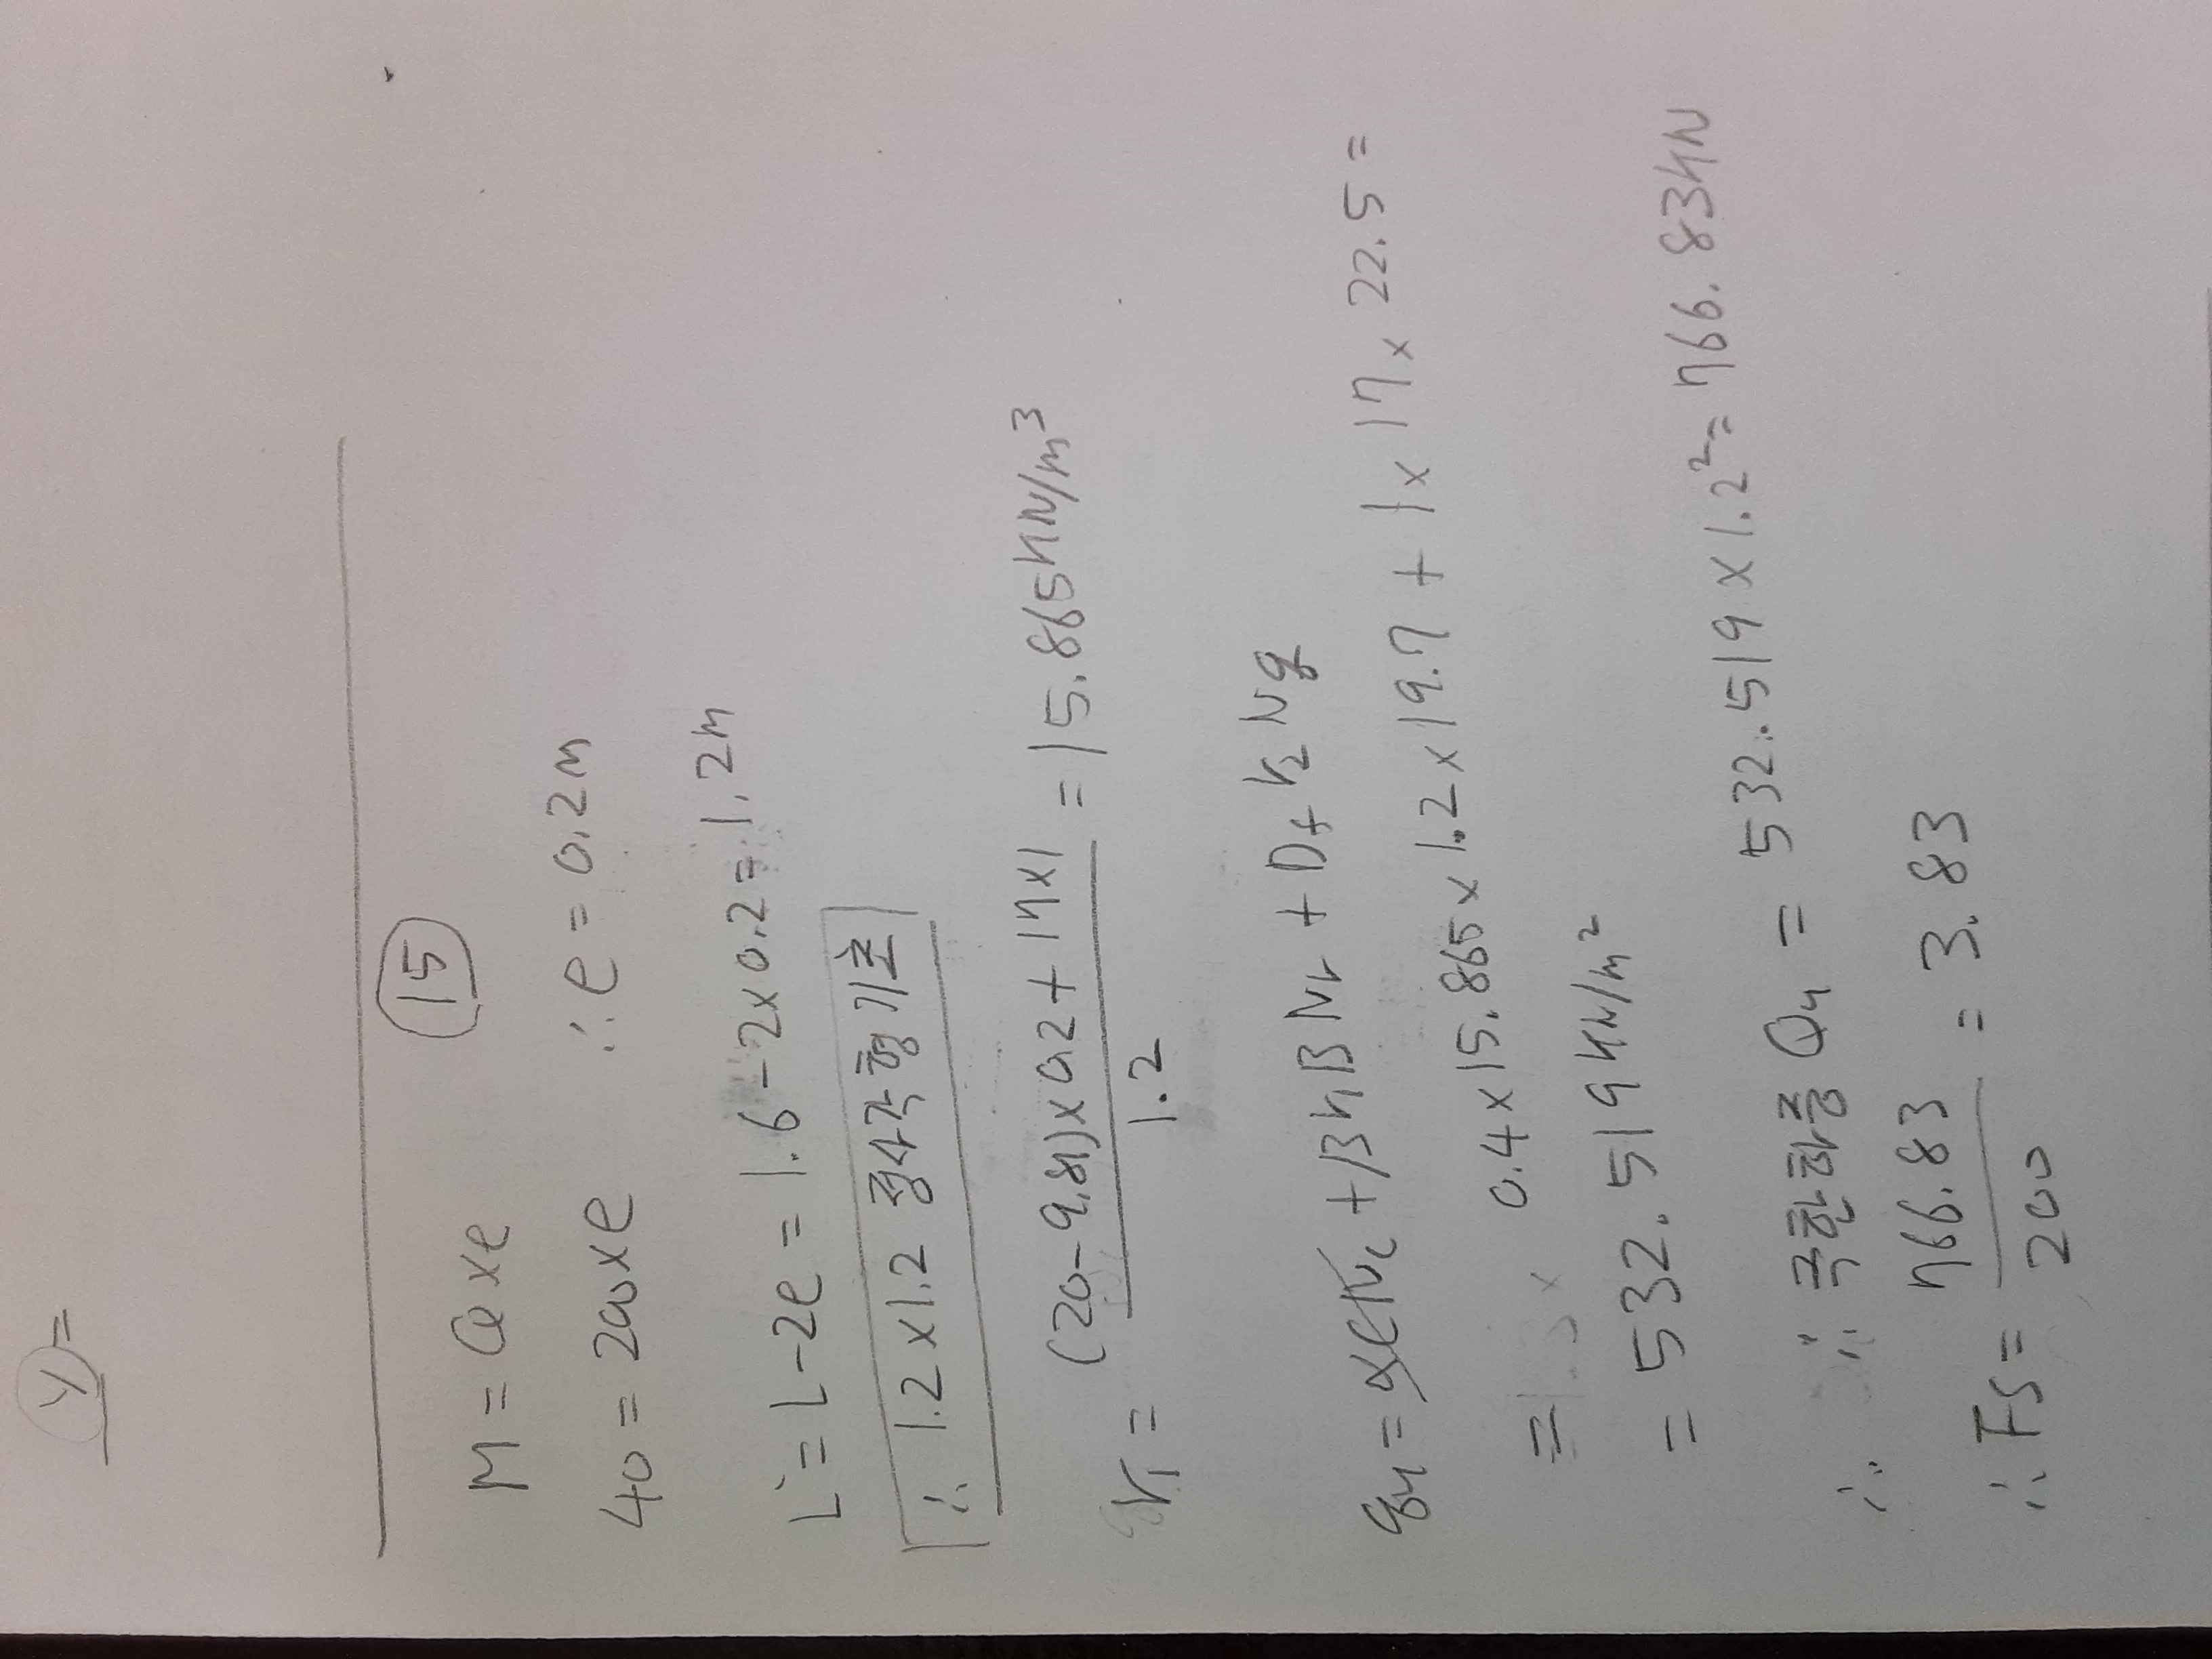 Y =
15
M = Q × e
40 = 200 × e ∴ e = 0.2m
L' = L - 2e = 1.6 - 2 × 0.2 = 1.2m
∴ 1.2 × 1.2 정사각형 기초
r₁ = (20 - 9.81) × 0.2 + 17 × 1 / 1.2 = 15.865 kN/m³
qu = αcNc + βr₁BNr + Df r₂ Nq
= 0.4 × 15.865 × 1.2 × 19.7 + 1 × 17 × 22.5 =
= 532.519 kN/m²
∴ 극한하중 Qu = 532.519 × 1.2² = 766.83kN
∴ FS = 766.83 / 200 = 3.83